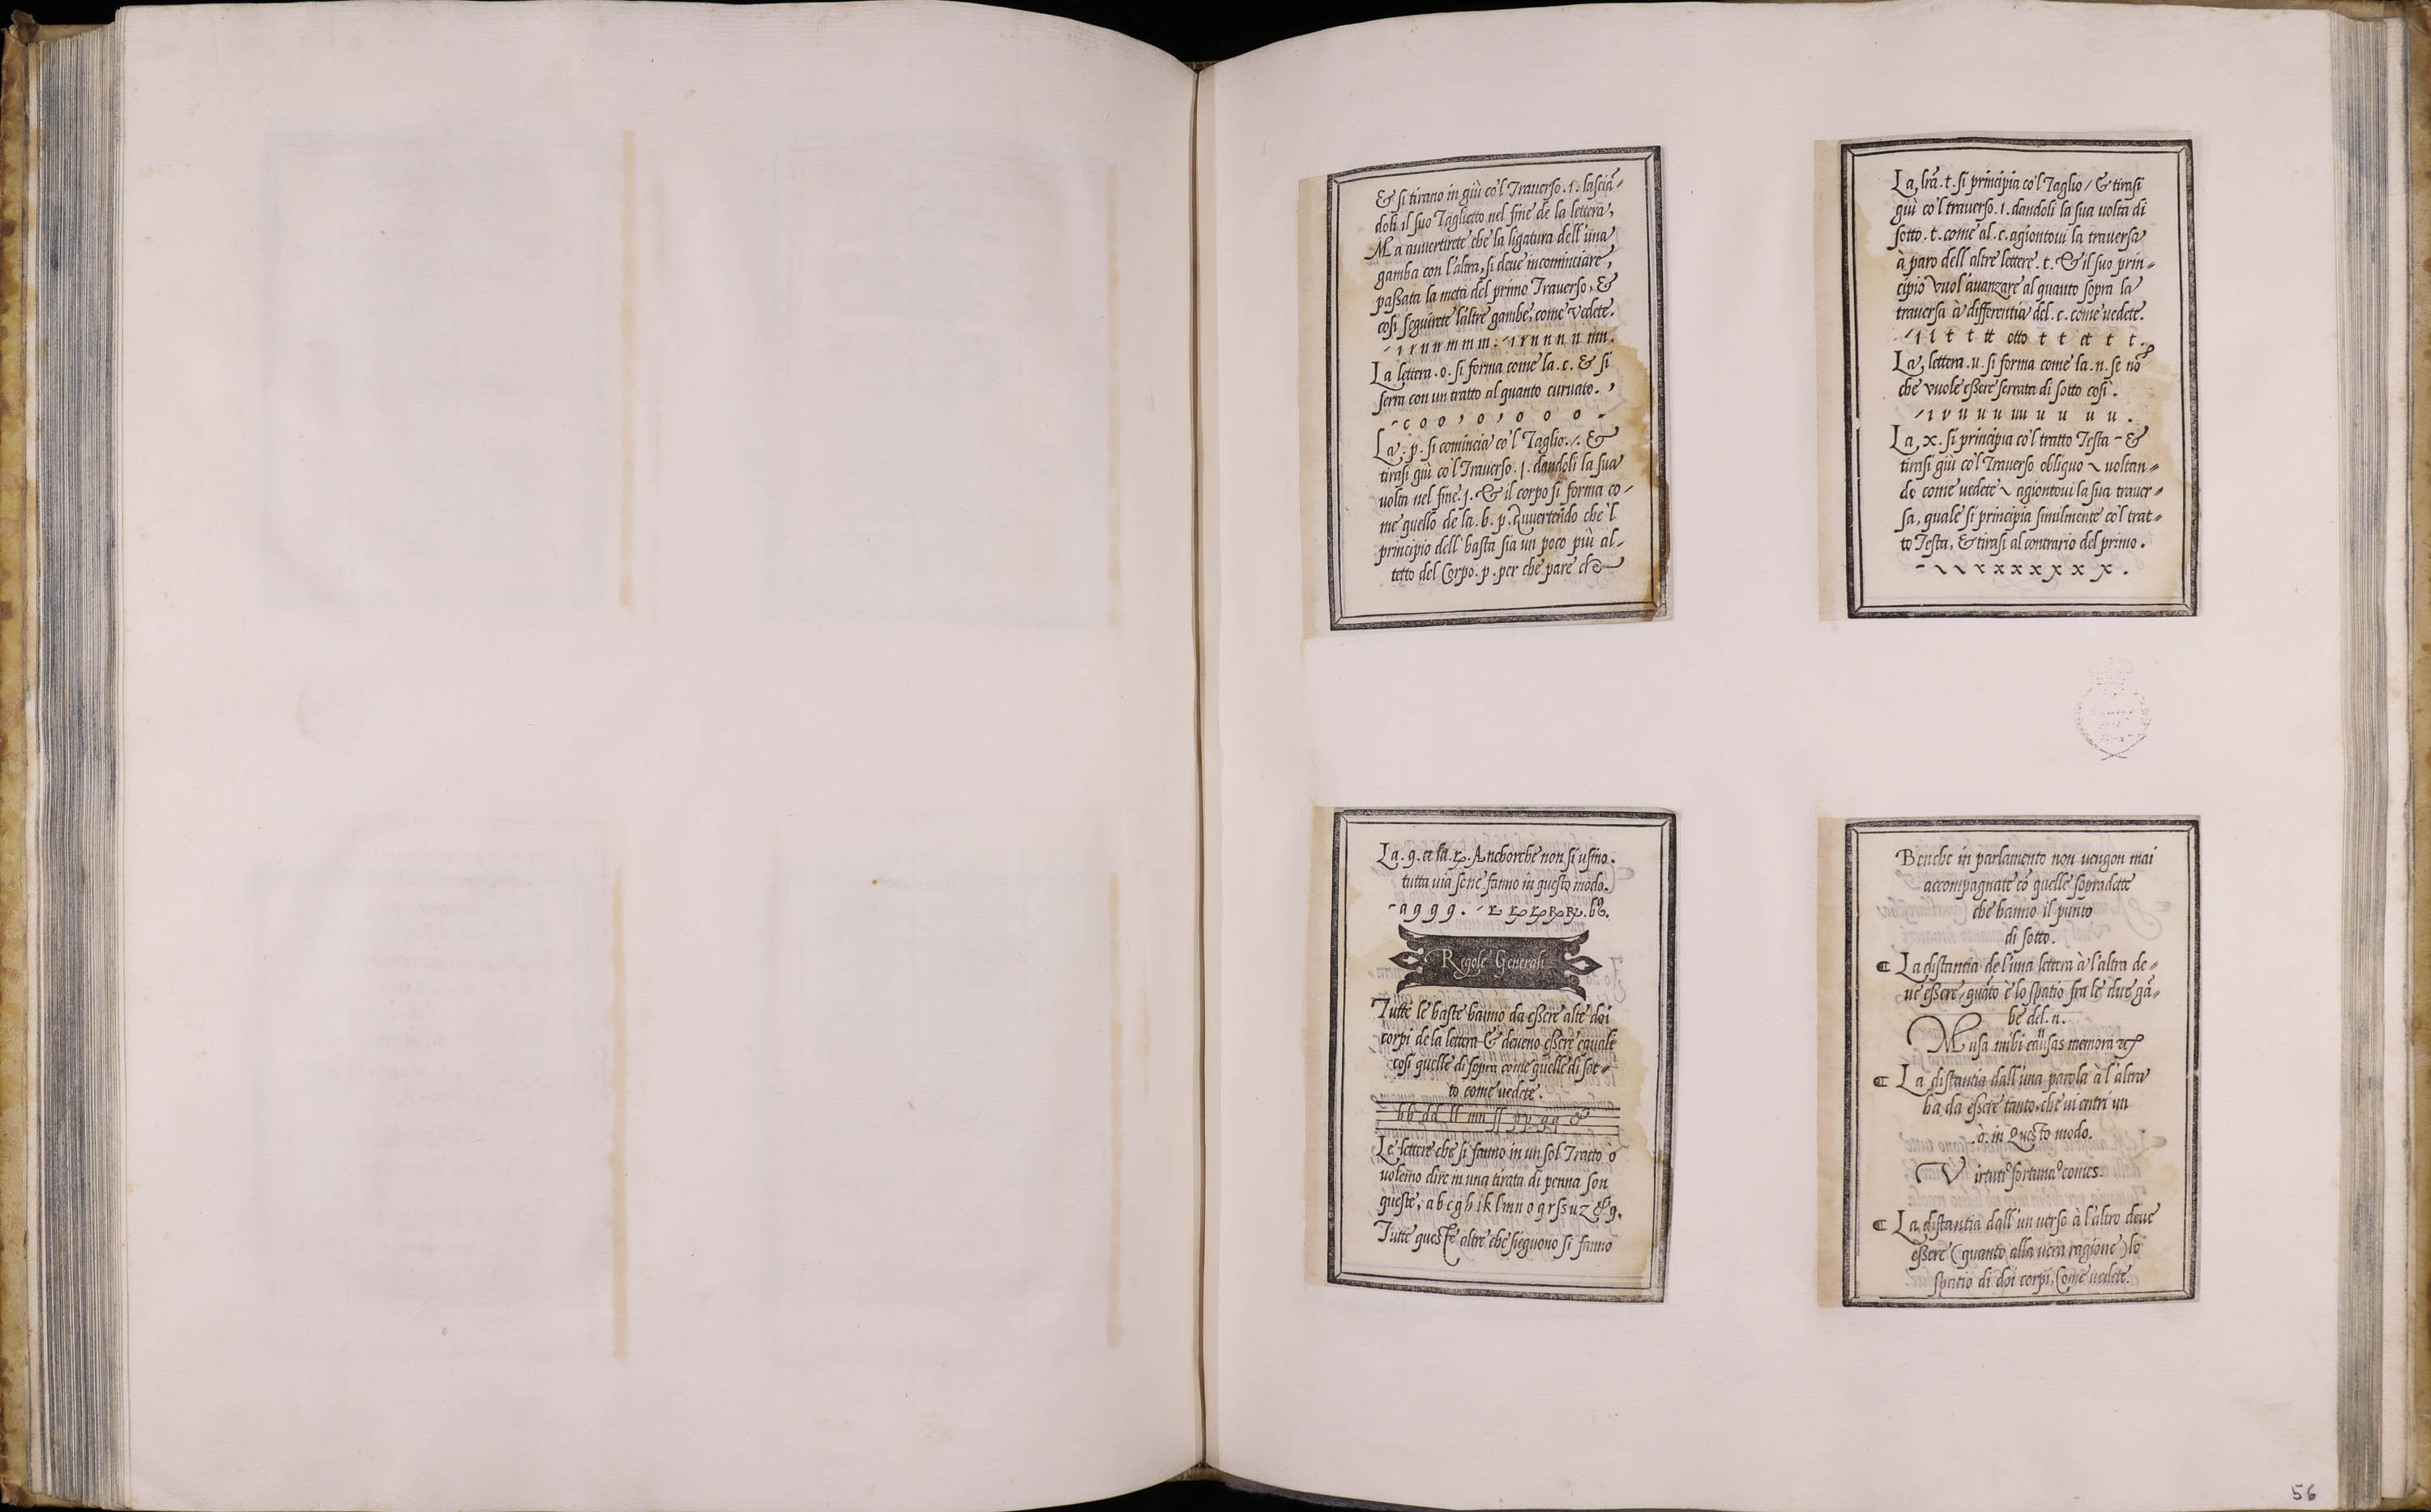 & si tirano in giù co'l Trauerso .ı. lasciā-
doli il suo Taglietto nel fine de la lettera,
Ma auuertirete che la ligatura dell'una
gamba con l'altra, si deue incominciare,
passata la metà del primo Trauerso, &
cosi seguirete l'altre gambe, come vedete.
La lettera .o. si forma come la .c. & si
serra con un tratto al quanto curuato. ,
- c o o , o , o o o -
La .p. si comincia co'l Taglio ./. &
tirasi giù co'l Trauerso .ſ. dandoli la sua
uolta nel fine .ſ. & il corpo si forma co-
me quello de la .b. p. Auuertendo che'l
principio dell'hasta sia un poco più al-
tetto del Corpo .p. per che pare che
La lrā .t. si principia co'l Taglio / & tirasi
giù co'l trauerso .ı. dandoli la sua uolta di
sotto .t. come al .c. agiontoui la trauersa
à paro dell'altre lettere .t. & il suo prin-
cipio vuol'auanzare al quanto sopra la
trauersa à differentia del .c. come uedete.
La lettera .u. si forma come la .n. se nō
che vuole essere serrata di sotto così .
La .x. si principia co'l tratto Testa - &
tirasi giù co'l Trauerso obliquo \ uoltan-
do come uedete \ agiontoui la sua trauer-
sa, quale si principia similmente co'l trat-
to Testa, & tirasi al contrario del primo .
- \ \ x x x x x x x .
La .q. et la .ꝝ. Anchorche non si usino .
tutta uia sene fanno in questo modo.
Regole Generali
Tutte le haste hanno da essere alte doi
corpi de la lettera & deueno essere equali
così quelle di sopra come quelle di sot-
to come uedete .
Le lettere che si fanno in un sol Tratto o
uolemo dire in una tirata di penna son
queste, a b c g h i k l m n o q r ſ s u z & 9.
Tutte queste altre che sieguono si fanno
Benche in parlamento non uengon mai
accompagnate cō quelle sopradette
che hanno il punto
di sotto.
¶ La distantia de l'una lettera à l'altra de-
ue essere, quāto è lo spatio fra le due gā-
be del .n.
Musa mihi caūsas memora
¶ La distantia dall'una parola à l'altra
ha da essere tanto, che ui entri un
.o. in questo modo.
Virtuti°fortuna°comes.
¶ La distantia dall'un uerso à l'altro deue
essere (quanto alla uera ragione) lo
spatio di doi corpi, Come uedete.
56